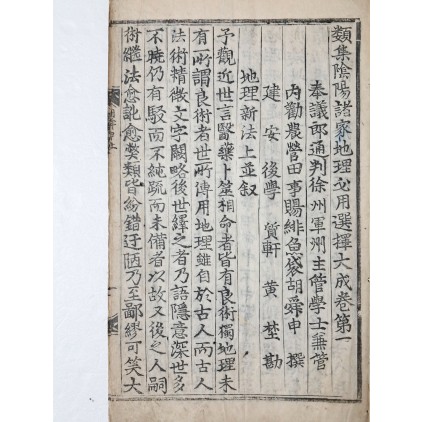 類集陰陽諸家地理必用選擇大成卷第一
奉議郎通判徐州軍州主管學士兼管
內勸農營田事賜緋魚袋胡舜申 撰
建安後學 質軒 黃 埜 勘
地理新法上並叙
予觀近世言醫藥卜筮相命者皆有良術獨地理未
有一所謂良術者世所傳用地理雖自於古人而古人
法術精微文字闕略後世繹之者乃語隱意深世多
不曉仍有駁而不純疏而未備者以故又後之人嗣
術繼法愈訛愈獘類皆紛錯迂陋乃至鄙繆可笑大